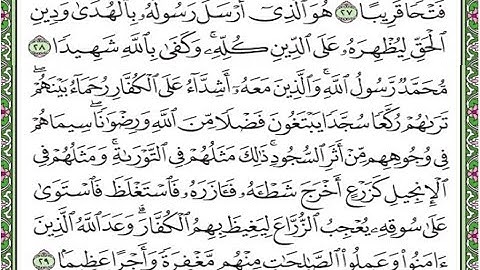 فَتْحًا قَرِيبًا ٢٧ هُوَ ٱلَّذِىٓ أَرْسَلَ رَسُولَهُۥ بِٱلْهُدَىٰ وَدِينِ
ٱلْحَقِّ لِيُظْهِرَهُۥ عَلَى ٱلدِّينِ كُلِّهِۦ ۚ وَكَفَىٰ بِٱللَّهِ شَهِيدًا ٢٨
مُّحَمَّدٌ رَّسُولُ ٱللَّهِ ۚ وَٱلَّذِينَ مَعَهُۥٓ أَشِدَّآءُ عَلَى ٱلْكُفَّارِ رُحَمَآءُ بَيْنَهُمْ ۖ
تَرَىٰهُمْ رُكَّعًا سُجَّدًا يَبْتَغُونَ فَضْلًا مِّنَ ٱللَّهِ وَرِضْوَٰنًا ۖ سِيمَاهُمْ
فِى وُجُوهِهِم مِّنْ أَثَرِ ٱلسُّجُودِ ۚ ذَٰلِكَ مَثَلُهُمْ فِى ٱلتَّوْرَىٰةِ ۚ وَمَثَلُهُمْ فِى
ٱلْإِنجِيلِ كَزَرْعٍ أَخْرَجَ شَطْـَٔهُۥ فَـَٔازَرَهُۥ فَٱسْتَغْلَظَ فَٱسْتَوَىٰ
عَلَىٰ سُوقِهِۦ يُعْجِبُ ٱلزُّرَّاعَ لِيَغِيظَ بِهِمُ ٱلْكُفَّارَ ۗ وَعَدَ ٱللَّهُ ٱلَّذِينَ
ءَامَنُوا۟ وَعَمِلُوا۟ ٱلصَّٰلِحَٰتِ مِنْهُم مَّغْفِرَةً وَأَجْرًا عَظِيمًۢا ٢٩